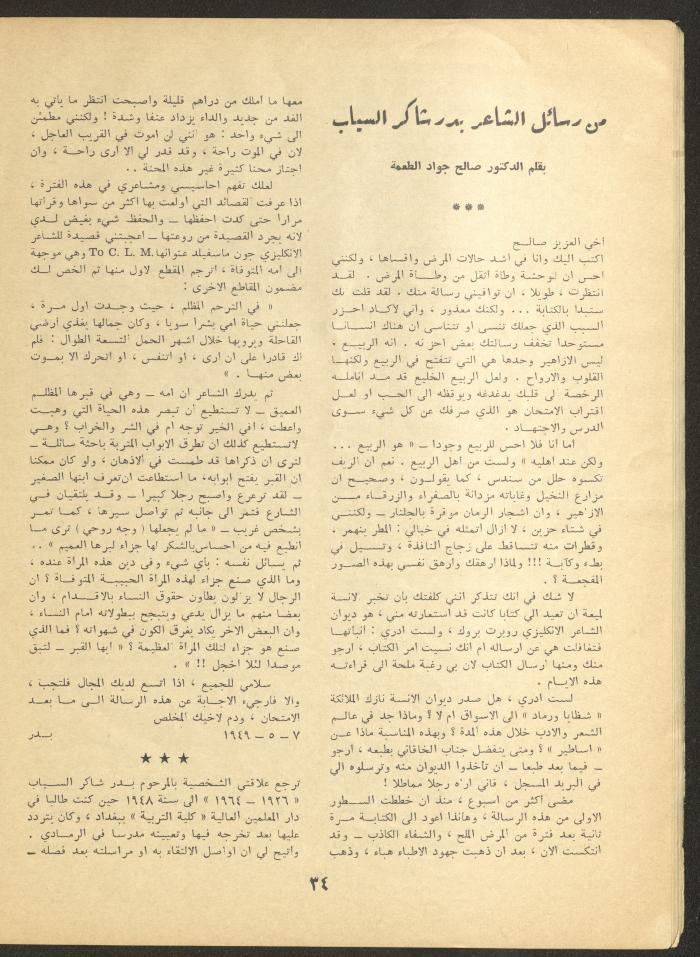 من رسائل الشاعر بدر شاكر السياب
بقلم الدكتور صالح جواد الطعمة
***
اخي العزيز صالح
اكتب اليك وانا في اشد حالات المرض واقساها ، ولكنني
احس ان لوحشة وطأة اثقل من وطأة المرض . لقد
انتظرت ، طويلا ، ان توافيني رسالة منك . لقد قلت لك
ستبدأ بالكتابة ... ولكنك معذور ، واني لاكاد احزر
السبب الذي جعلك تنسى او تتناسى ان هناك انسانا
مستوحدا تخفف رسالتك بعض احزنه . انه الربيع .
ليس الازاهير وحدها هي التي تتفتح في الربيع ولكنها
القلوب والارواح . ولعل الربيع الخليع قد مد انامله
الرخصة لى قلبك يدغدغه ويوقظه الى الحب او لعل
اقتراب الامتحان هو الذي صرفك عن كل شيء سوى
الدرس والاجتهاد .
أما أنا فلا احس للربيع وجودا ــ « هو الربيع ...
ولكن عند اهليه » ولست من اهل الربيع . نعم ان الريف
تكسوه حلل من سندس ، كما يقولون ، وصحيح ان
مزارع النخيل وغاباته مزدانة بالصفراء والزرقاء من
الازهير ، وان اشجار الرمان موقرة بالجلنار ــ ولكنني
في شتاء حزين ، لا ازال اتمثله في خيالي : المطر ينهمر .
وقطرات منه تتساقط على زجاج النافذة ، وتسيل في
بطء وكآبة !!! ولماذا ارهقك وارهق نفسي بهذه الصور
المفجعة ؟ .
لا شك في انك تتذكر انني كلفتك بان تخبر لانسة
لميعة ان تعيد الي كتابا كانت قد استعارته مني ، هو ديوان
الشاعر الانكليزي روبرت بروك ، ولست ادري : انبأتها
فتغافلت هي عن ارساله ام انك نسيت امر الكتاب ، ارجو
منك ومنها ارسال الكتاب لان بي رغبة ملحة الى قراءته
هذه الايام .
لست ادري ، هل صدر ديوان الانسة نازك الملائكة
« شظايا ورماد » الى الاسواق ام لا ؟ وماذا جد في عالم
الشعر والادب خلال هذه المدة ؟ وبهذه المناسبة ماذا عن
« اساطير » ؟ ومتى يتفضل جناب الخاقاني بطبعه ، ارجو
ــ فيما بعد طبعا ــ ان تأخذوا الديوان منه وترسلوه الي
في البريد المسجل ، فاني اراه رجلا مماطلا !
مضى اكثر من اسبوع ، منذ ان خططت السطور
الاولى من هذه الرسالة ، وهانذا اعود الى الكتابة مرة
ثانية بعد فترة من المرض الملح ، والشفاء الكاذب ــ وقد
انتكست الان ، بعد ان ذهبت جهود الاطباء هباء ، وذهب
معها ما املك من دراهم قليلة واصبحت انتظر ما يأتي به
الغد من جديد والداء يزداد عنفا وشدة ! ولكنني مطمئن
الى شيء واحد : هو انني لن اموت في القريب العاجل ،
لان في الموت راحة ، وقد قدر لي الا ارى راحة ، وان
اجتاز محنا كثيرة غير هذه المحنة ..
لعلك تفهم احاسيسي ومشاعري في هذه الفترة ،
اذا عرفت القصائد التي اولعت بها اكثر من سواها وقرأتها
مرارا حتى كدت احفظها ــ والحفظ شيء بغيض لدي
لانه يجرد القصيدة من روعتها ــ اعجبتني قصيدة للشاعر
الانكليزي جون ماسفيلد عنوانها .To C. L. M وهي موجهة
الى امه المتوفاة ، اترجم المقطع لاول منها ثم الخص لك
مضمون المقاطع الاخرى :
« في الترحم المظلم ، حيث وجدت اول مرة ،
جعلتني حياة امي بشرا سويا ، وكان جمالها يغذي ارضي
القاحلة ويرويها خلال اشهر الحمل التسعة الطوال : فلم
اك قادرا على ان ارى ، او اتنفس ، او اتحرك الا بموت
بعض منها . »
ثم يدرك الشاعر ان امه ــ وهي في قبرها المظلم
العميق ــ لا تستطيع ان تبصر هذه الحياة التي وهبت
واعطت ، افي الخير توجه ام في الشر والخراب ؟ وهي
لاتستطيع كذلك ان تطرق الابواب المتربة باحثة سائلة ــ
لترى ان ذكراها قد طمست في الاذهان ، ولو كان ممكنا
ان القبر يفتح ابوابه، ما استطاعت ان تعرف ابنها الصغير
ــ لقد ترعرع واصبح رجلا كبيرا ــ وقد يلتقيان في
الشارع فتمر الى جانبه ثم تواصل سيرها ، كما تمر
بشخص غريب ــ « ما لم يجعلها ( وجه روحي ) ترى ما
انطبع فيه من احساس بالشكر لها جزاء لبرها العميم » ..
ثم يسائل نفسه : بأي شيء وفى دين هذه المرأة عنده ،
وما الذي صنع جزاء لهذه المرأة الحبيبة المتوفاة ؟ ان
الرجال لا يزالون يطأون حقوق النساء بالاقدام ، وان
بعضا منهم ما يزال يدعي ويتبجح ببطولاته امام النساء ،
وان البعض الاخر يكاد يغرق الكون في شهواته ؟ فما الذي
صنع هو جزاء لتلك المرأة العظيمة ؟ « ايها القبر ــ لتبق
موصدا لئلا اخجل !! » .
سلامي للجميع ، اذا اتسع لديك المجال فلتجب ،
والا فارجيء الاجابة عن هذه الرسالة الى ما بعد
الامتحان ، ودم لاخيك المخلص
٧ – ٥ – ١٩٤٩ بدر
★★★
ترجع علاقتي الشخصية بالمرحوم بدر شاكر السياب
« ١٩٢٦ – ١٩٦٤ » الى سنة ١٩٤٨ حين كنت طالبا في
دار المعلمين العالية « كلية التربية » ببغداد ، وكان يتردد
عليها بعد تخرجه فيها وتعيينه مدرسا في الرمادي .
وأتيح لي ان اواصل الالتقاء به او مراسلته بعد فصله ــ
٣٤